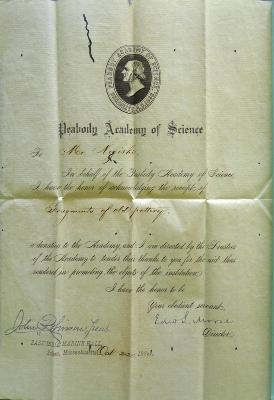 PEABODY ACADEMY OF SCIENCE
Peabody Academy of Science
To Mr.
In behalf of the Peabody Academy of Science
I have the honor of acknowledging the receipt of
Fragments of old pottery
a donation to the Academy, and I am directed by the Trustees
of the Academy to tender their thanks to you for the aid thus
rendered in promoting the objects of the institution.
I have the honor to be
Your obedient servant,
Edw. S. Morse
Director.
John Treas
EAST INDIA MARINE HALL,
Salem, Massachusetts, Oct